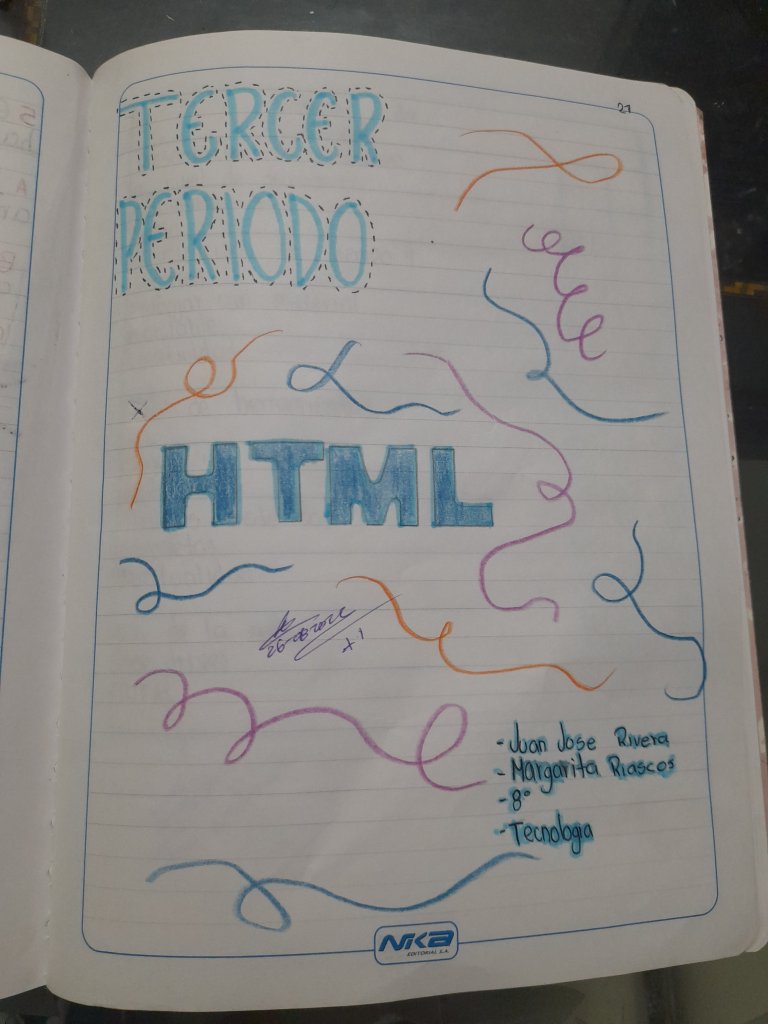 27
TERCER
PERIODO
HTML
26-08-2022
+1
- Juan Jose Rivera
- Margarita Riascos
- 8°
- Tecnologia
NIKA
EDITORIAL S.A.